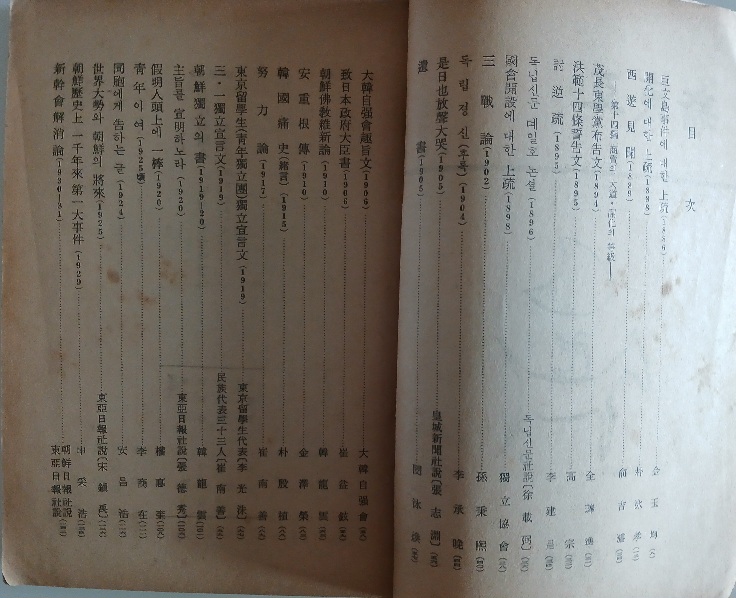 目次
巨文島事件에 대한 上疏(1886) 金玉均
開化에 대한 上疏(1888)
西遊見聞(1889)
茂長東學黨布告文(1894) 全琫準
洪範十四條誓告文(1895) 高宗
討逆疏(1895) 李建昌
독립신문 논설(1896) 독립신문社說〔徐載弼〕
國會開設에 대한 上疏(1898) 獨立協會
三戰論(1902) 孫秉熙
독립정신(후록)(1904) 李承晚
是日也放聲大哭(1905) 皇城新聞社說〔張志淵〕
遺書(1905) 閔泳煥
大韓自强會趣旨文(1906) 大韓自强會
致日本政府大臣書(1906) 崔益鉉
朝鮮佛敎維新論(1910) 韓龍雲
安重根傳(1910) 金澤榮
韓國痛史(緖言)(1915) 朴殷植
努力論(1917) 崔南善
東京留學生(靑年獨立團)獨立宣言文(1919) 東京留學生代表〔李光洙〕
三・一獨立宣言文(1919) 民族代表三十三人〔崔南善〕
朝鮮獨立의 書(1919~20) 韓龍雲
主旨를 宣明하노라(1920) 東亞日報社說〔張德秀〕
假明人頭上에 一棒(1920)
靑年이여(1925) 李商在
同胞에게 告하는 글(1924) 安昌浩
世界大勢와 朝鮮의 將來(1925) 東亞日報社說〔宋鎭禹〕
朝鮮歷史上 一千年來 第一大事件(1929) 申采浩
新幹會解消論(1930~31) 朝鮮日報社說 東亞日報社說